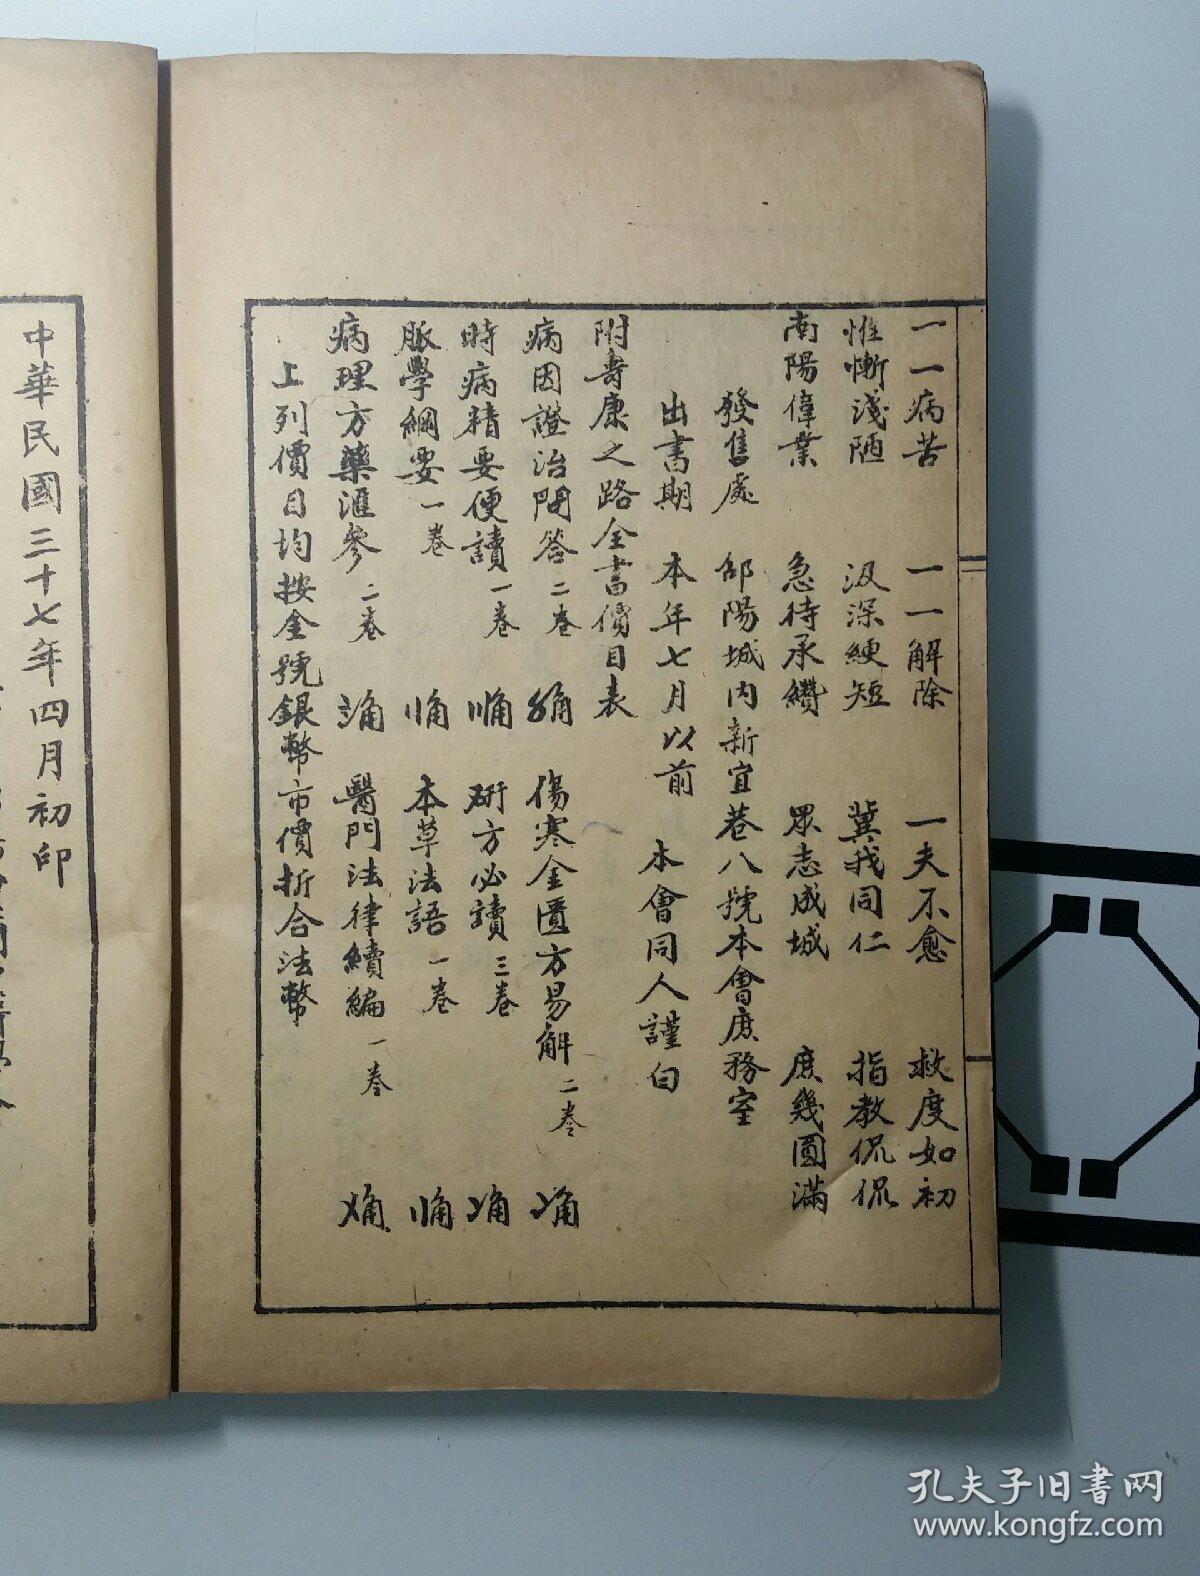 一一病苦 一一解除 一夫不愈 救度如初
惟慚淺陋 汲深綆短 冀我同仁 指教侃侃
南陽偉業 急待承纘 眾志成城 庶幾圓滿
發售處 邵陽城內新宜巷八號本會庶務室
出書期 本年七月以前 本會同人謹白
附壽康之路全書價目表
病因證治問答二卷 傷寒金匱方易解二卷
時病精要便讀一卷 研方必讀三卷
脈學綱要一卷 本草法語一卷
病理方藥滙參二卷 醫門法律續編一卷
上列價目均按金號銀幣市價折合法幣
中華民國三十七年四月初印
孔夫子旧书网
www.kongfz.com